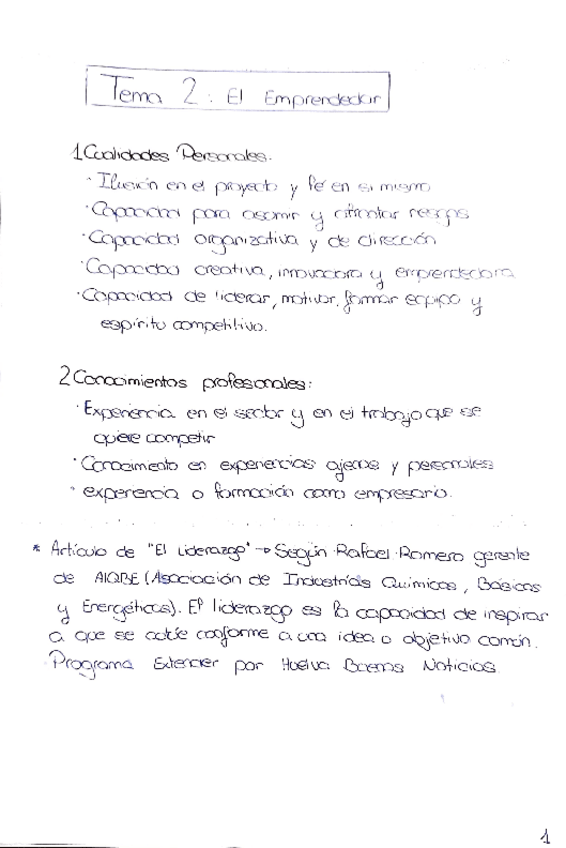 Tema 2: El Emprendedor
1 Cualidades Personales.
· Ilusión en el proyecto y fé en si mismo
· Capacidad para asumir y afrontar riesgos
· Capacidad organizativa y de dirección
· Capacidad creativa, innovadora y emprendedora
· Capacidad de liderar, motivar, formar equipo y
espíritu competitivo.
2 Conocimientos profesionales:
· Experiencia en el sector y en el trabajo que se
quiere competir
· Conocimiento en experiencias ajenas y personales
· experiencia o formación como empresario.
* Artículo de "El Liderazgo" → Según Rafael Romero gerente
de AIQBE (Asociación de Industrias Químicas, Básicas
y Energéticas). El liderazgo es la capacidad de inspirar
a que se actúe conforme a una idea o objetivo común.
Programa Extender por Huelva Buenas Noticias
1